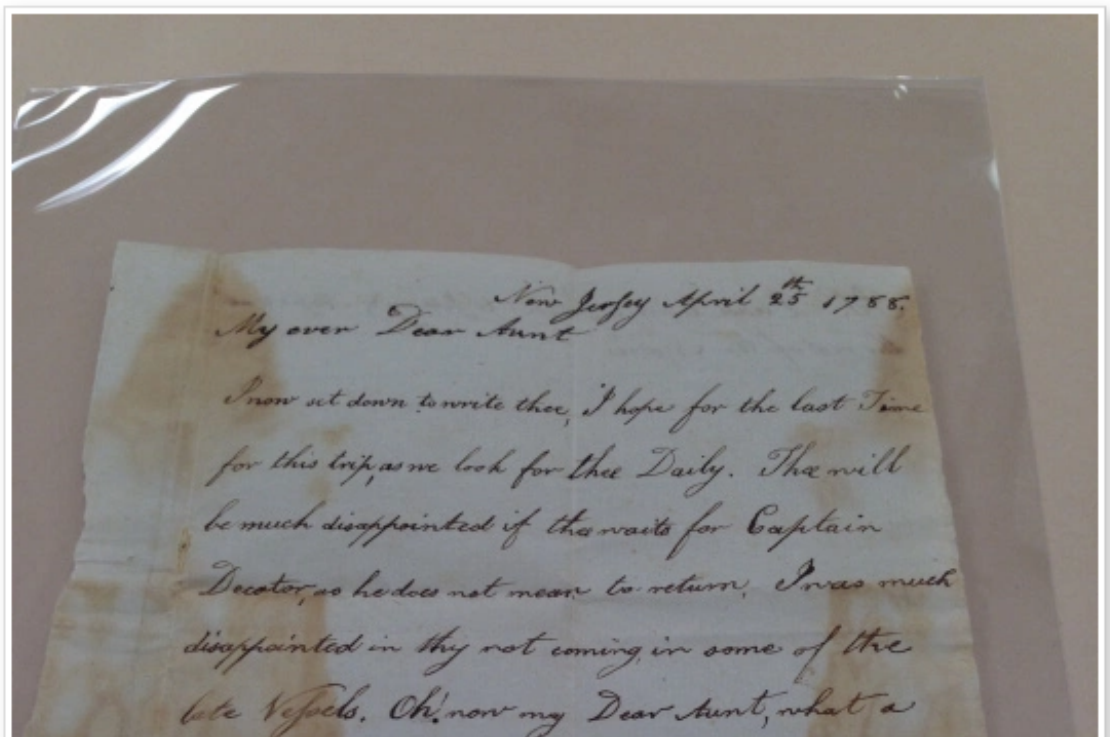 New Jersey April 25th 1788.
My ever Dear Aunt
I now set down to write thee, I hope for the last Time
for this trip, as we look for thee Daily. Thee will
be much disappointed if thee waits for Captain
Decator, as he does not mean to return, I was much
disappointed in thy not coming in some of the
late Vessels. Oh! now my Dear Aunt, what a